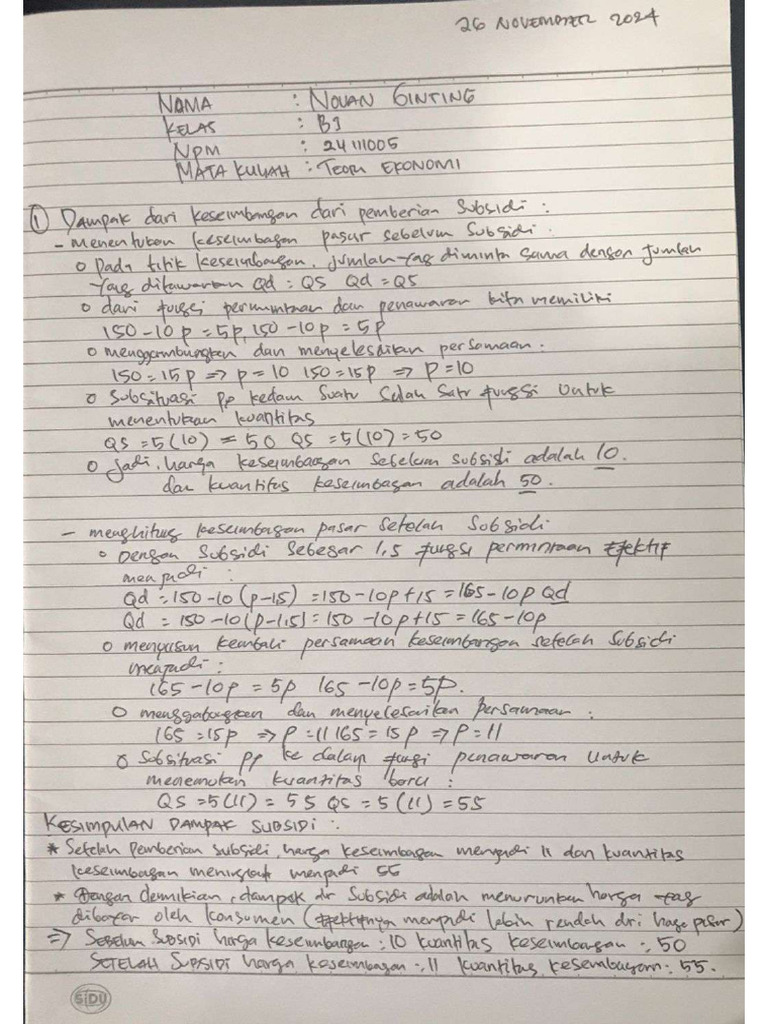 26 NOVEMBER 2024
NAMA : NOVAN GINTING
KELAS : B3
NPM : 24111005
MATA KULIAH : TEORI EKONOMI
① Dampak dari keseimbangan dari pemberian Subsidi :
- Menentukan keseimbagan pasar sebelum Subsidi :
o Pada titik keseimbangan, jumlah yag diminta sama dengan jumlah
yang ditawarkan Qd = QS Qd = QS
o dari fungsi permintaan dan penawaran kita memiliki
150 - 10p = 5p, 150 - 10p = 5p
o menggambungkan dan menyelesaikan persamaan :
150 = 15p => p = 10 150 = 15p => p = 10
o Subsitusi pp kedam Suatu Salah Satu fungsi Untuk
menentukan kuantitas
QS = 5(10) = 50 QS = 5(10) = 50
o jadi, harga keseimbangan sebelum subsidi adalah 10.
dan kuantitas keseimbagan adalah 50.
- menghitug keseimbagan pasar setelah Subsidi
o Dengan Subsidi sebesar 1,5 fungsi permintaan Efektif
menjadi :
Qd = 150 - 10 (p - 15) = 150 - 10p + 15 = 165 - 10p Qd
Qd = 150 - 10 (p - 1,5) = 150 - 10p + 15 = 165 - 10p
o menyusun kembali persamaan keseimbangan setelah Subsidi
menjadi :
165 - 10p = 5p 165 - 10p = 5p.
o menggabungkan dan menyelesaikan Persamaan :
165 = 15p => p = 11 165 = 15p => p = 11
o Sobsitusi pp ke dalam fungsi penawaran Untuk
menemukan kuantitas baru :
QS = 5(11) = 55 QS = 5(11) = 55
KESIMPULAN DAMPAK SUBSIDI :
* Setelah Pemberian subsidi, harga keseimbagan menjadi 11 dan kuantitas
keseimbagan meningkat menjadi 55
* Dengan demikian, dampak dr Subsidi adalah menurunkan harga yag
dibayar oleh konsumen (Efektifnya menjadi lebih rendah dri harga pasar)
=> SEBELUM SUBSIDI harga keseimbangan : 10 kuantitas keseimbangan : 50
SETELAH SUBSIDI harga keseimbangan : 11 kuantitas kesembagam : 55.
SiDU